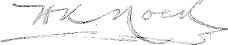 WK Nock